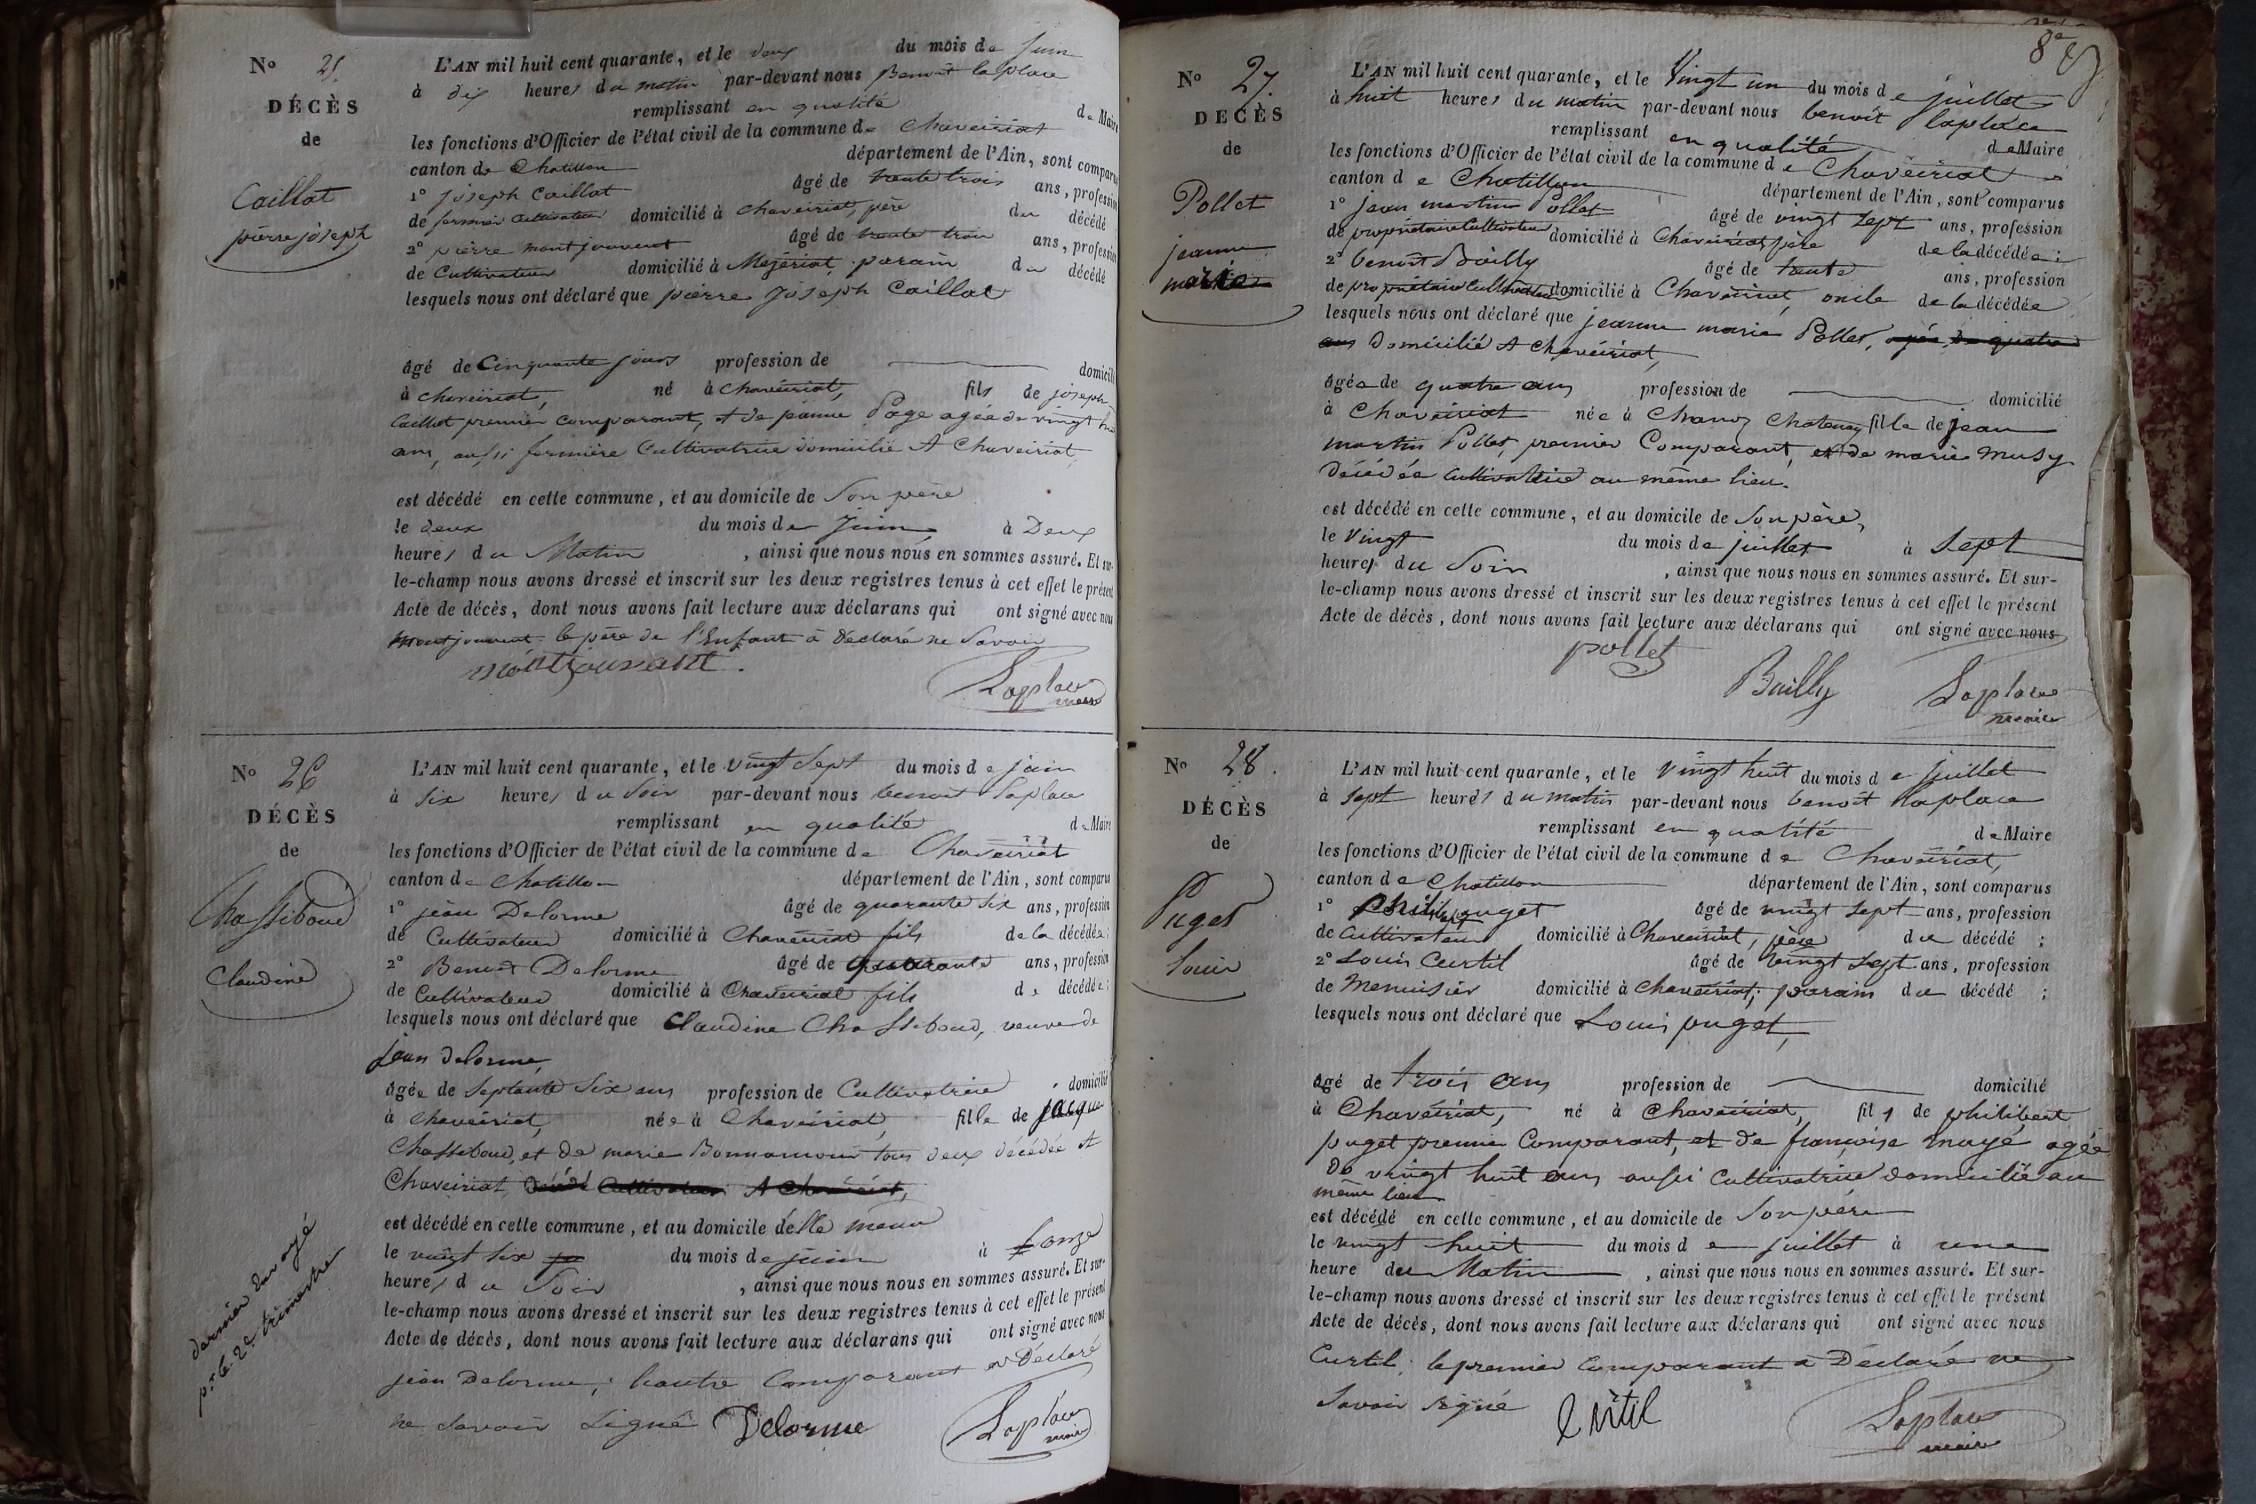 N° 25.
DÉCÈS
de
Caillat
pierre joseph
L'AN mil huit cent quarante, et le deux du mois de juin
à dix heures du matin par-devant nous Benoit laplace
remplissant en qualité de Maire
les fonctions d'Officier de l'état civil de la commune de Chaveiriat
canton de Chatillon département de l'Ain, sont comparus
1° joseph Caillat âgé de trente trois ans, profession
de fermier Cultivateur domicilié à Chaveiriat, père du décédé
2° pierre montjouvent âgé de trente trois ans, profession
de Cultivateur domicilié à Mézériat, parain du décédé
lesquels nous ont déclaré que pierre joseph Caillat
âgé de Cinquante jours profession de domicilié
à chaveiriat, né à chaveiriat, fils de joseph
Caillat premier comparant, et de Page agée de vingt
ans, aussi fermière Cultivatrice domicilié A Chaveiriat
est décédé en cette commune, et au domicile de Son père
le deux du mois de Juin à Deux
heures du Matin, ainsi que nous nous en sommes assuré. Et sur-
le-champ nous avons dressé et inscrit sur les deux registres tenus à cet effet le présent
Acte de décès, dont nous avons fait lecture aux déclarans qui ont signé avec nous
montjouvent. le père de l'Enfant à déclaré ne Savoir
montjouvent.
Laplace
maire
N° 26
DÉCÈS
de
Chassiboud
Claudine
L'AN mil huit cent quarante, et le vingt Sept du mois de juin
à Six heures du Soir par-devant nous benoit Laplace
remplissant en qualité de Maire
les fonctions d'Officier de l'état civil de la commune de Chaveiriat
canton de Chatillon département de l'Ain, sont comparus
1° jean Delorme âgé de quarante Six ans, profession
de Cultivateur domicilié à Chaveiriat fils de la décédée;
2° Benoit Delorme âgé de quarante ans, profession
de Cultivateur domicilié à Chaveiriat fils de décédée;
lesquels nous ont déclaré que Claudine Chassiboud, veuve de
jean Delorme,
âgée de Septante Six ans profession de Cultivatrice, domicilié
à Chaveiriat, née à Chaveiriat, fille de jacque
Chassiboud, et de marie Bonnamour tous deux décédée A
Chaveiriat, Cultivateur A Chaveiriat,
est décédé en cette commune, et au domicile d'elle meme
le vingt Six du mois de juin à onze
heures du Soir, ainsi que nous nous en sommes assuré. Et sur-
le-champ nous avons dressé et inscrit sur les deux registres tenus à cet effet le présent
Acte de décès, dont nous avons fait lecture aux déclarans qui ont signé avec nous
jean Delorme; l'autre Comparant a Déclaré
ne Savoir Signé Delorme
Laplace
maire
dernier envoyé
pr le 2e trimestre
8e
N° 27.
DÉCÈS
de
Pollet
jeanne
marie
L'AN mil huit cent quarante, et le Vingt un du mois de juillet
à huit heures du matin par-devant nous benoit laplace
remplissant en qualité de Maire
les fonctions d'Officier de l'état civil de la commune de Chaveiriat
canton de Chatillon département de l'Ain, sont comparus
1° jean martin Pollet âgé de vingt Sept ans, profession
de propriétaire Cultivateur domicilié à Chaveiriat père de la décédée;
2° benoit Bailly âgé de trente ans, profession
de propriétaire Cultivateur domicilié à Chaveiriat oncle de la décédée
lesquels nous ont déclaré que jeanne marie Pollet, agée de quatre
ans Domicilié A Chaveiriat,
âgée de quatre ans profession de domicilié
à Chaveiriat née à Chanoz Chatenay fille de jean
martin Pollet, premier Comparant, et de marie Musy
Décédée Cultivatrice au même lieu.
est décédé en cette commune, et au domicile de Son père,
le Vingt du mois de juillet à Sept
heures du Soir, ainsi que nous nous en sommes assuré. Et sur-
le-champ nous avons dressé et inscrit sur les deux registres tenus à cet effet le présent
Acte de décès, dont nous avons fait lecture aux déclarans qui ont signé avec nous
pollet
Bailly
Laplace
maire
N° 28.
DÉCÈS
de
Puget
Louis
L'AN mil huit cent quarante, et le vingt huit du mois de juillet
à Sept heures du matin par-devant nous benoit laplace
remplissant en qualité de Maire
les fonctions d'Officier de l'état civil de la commune de Chaveiriat,
canton de Chatillon département de l'Ain, sont comparus
1° philibert puget âgé de vingt Sept ans, profession
de Cultivateur domicilié à Chaveiriat, père du décédé;
2° Louis Curtil âgé de vingt Sept ans, profession
de Menuisier domicilié à Chaveiriat; parain du décédé;
lesquels nous ont déclaré que Louis puget,
âgé de trois ans profession de domicilié
à Chaveiriat, né à Chaveiriat, fils de philibert
puget premier Comparant, et de françoise mayé agée
De vingt huit ans aussi Cultivatrice domicilié au
même lieu
est décédé en cette commune, et au domicile de Son père
le vingt huit du mois de juillet à une
heure du Matin, ainsi que nous nous en sommes assuré. Et sur-
le-champ nous avons dressé et inscrit sur les deux registres tenus à cet effet le présent
Acte de décès, dont nous avons fait lecture aux déclarans qui ont signé avec nous
Curtil; le premier Comparant a Déclaré ne
Savoir signé Curtil
Laplace
maire